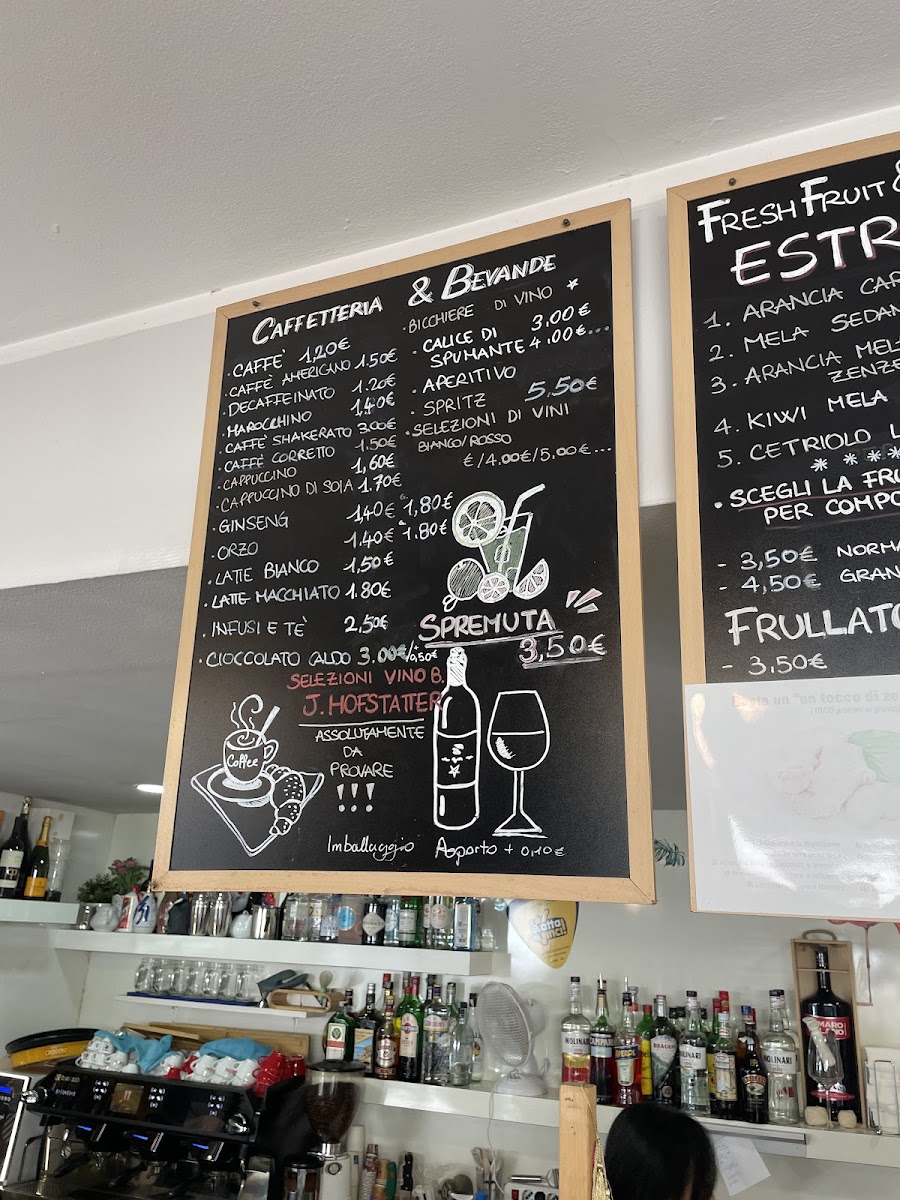 CAFFETTERIA & BEVANDE
· CAFFE' 1,20€
· CAFFE' AMERICANO 1.50€
· DECAFFEINATO 1.20€
· MAROCCHINO 1,40€
· CAFFE' SHAKERATO 3.00€
· CAFFÈ CORRETTO 1.50€
· CAPPUCCINO 1,60€
· CAPPUCCINO DI SOIA 1.70€
· GINSENG 1,40€ 1,80€
· ORZO 1.40€ 1.80€
· LATTE BIANCO 1.50€
· LATTE MACCHIATO 1.80€
· INFUSI E TE' 2,50€
· CIOCCOLATO CALDO 3.00€/+0,50€
· BICCHIERE DI VINO *
3,00€
· CALICE DI
SPUMANTE 4.00€...
· APERITIVO
· SPRITZ 5,50€
· SELEZIONI DI VINI
BIANCO/ROSSO
€/4.00€/5.00€...
SPREMUTA
3,50€
SELEZIONI VINO B.
J. HOFSTATTER
ASSOLUTAMENTE
DA
PROVARE
!!!
Coffee
Imballaggio Asporto + 0,10€
FRESH FRUIT &
ESTR
1. ARANCIA CAR
2. MELA SEDAN
3. ARANCIA MEL
ZENZE
4. KIWI MELA
5. CETRIOLO L
****
· SCEGLI LA FRU
PER COMPO
- 3,50€ NORMA
- 4,50€ GRAN
FRULLATO
- 3.50€
MOLINARI
CAMPARI
APEROL
BRAULIO
MOLINARI
MOLINARI
AMARO